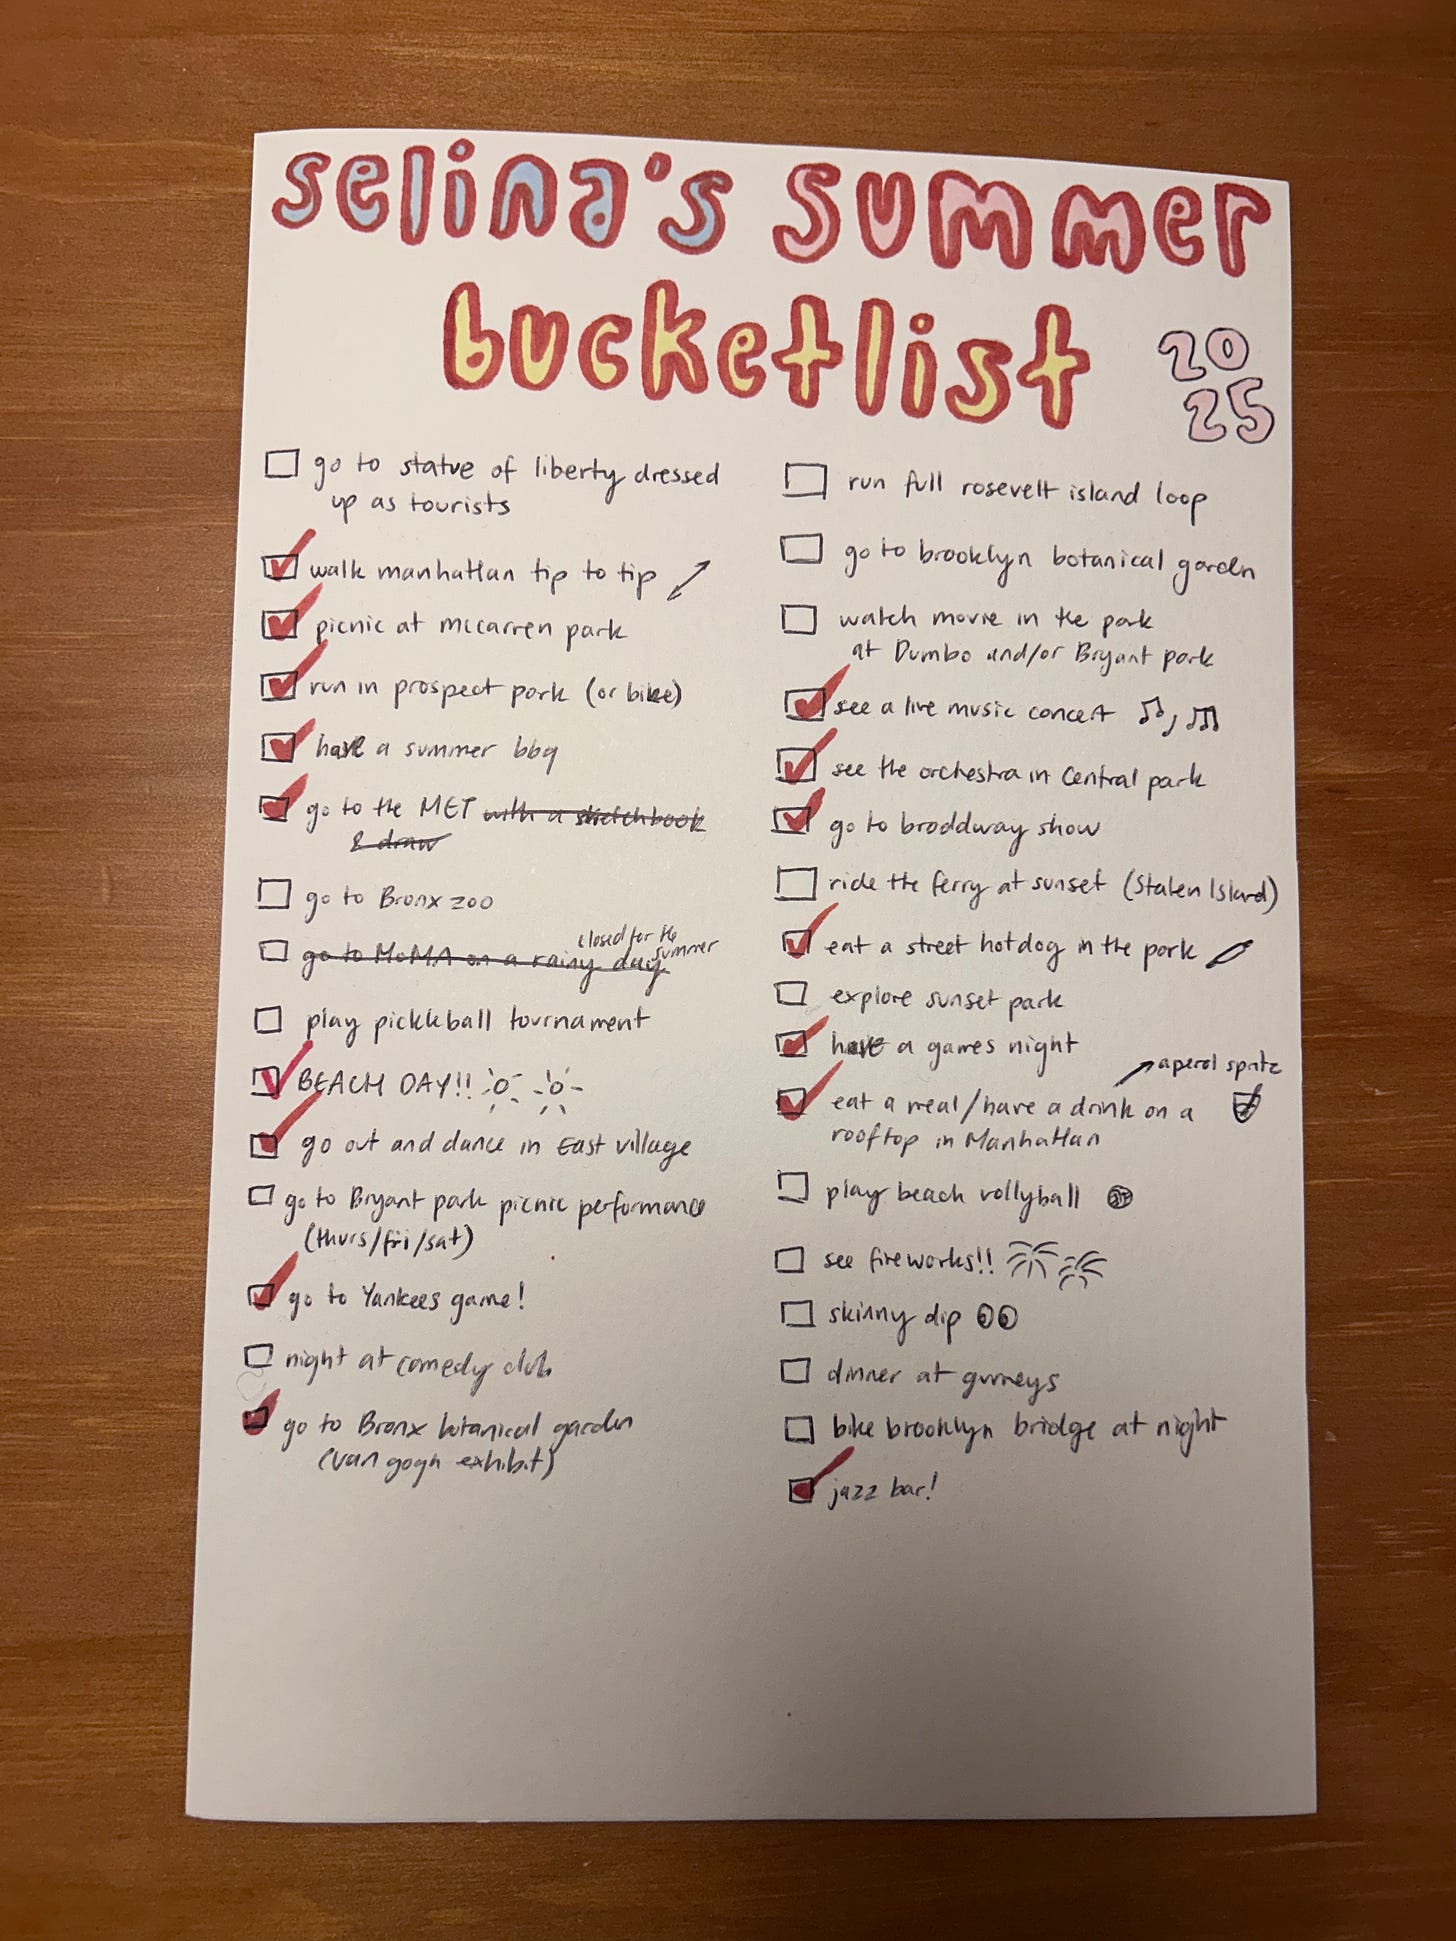 selina's summer
bucketlist
20
25
go to statue of liberty dressed
up as tourists
walk manhattan tip to tip
picnic at mccarren park
run in prospect park (or bike)
have a summer bbq
go to the MET with a sketchbook
& draw
go to Bronx zoo
closed for the
summer
go to MoMA on a rainy day
play pickleball tournament
BEACH DAY!!
go out and dance in East village
go to Bryant park picnic performance
(thurs/fri/sat)
go to Yankees game!
night at comedy club
go to Bronx botanical garden
(van gogh exhibit)
run full rosevelt island loop
go to brooklyn botanical garden
watch movie in the park
at Dumbo and/or Bryant park
see a live music concert
see the orchestra in Central park
go to broddway show
ride the ferry at sunset (Staten Island)
eat a street hotdog in the park
explore sunset park
have a games night
aperol spritz
eat a meal/have a drink on a
rooftop in Manhattan
play beach vollyball
see fireworks!!
skinny dip
dinner at gurneys
bike brooklyn bridge at night
jazz bar!